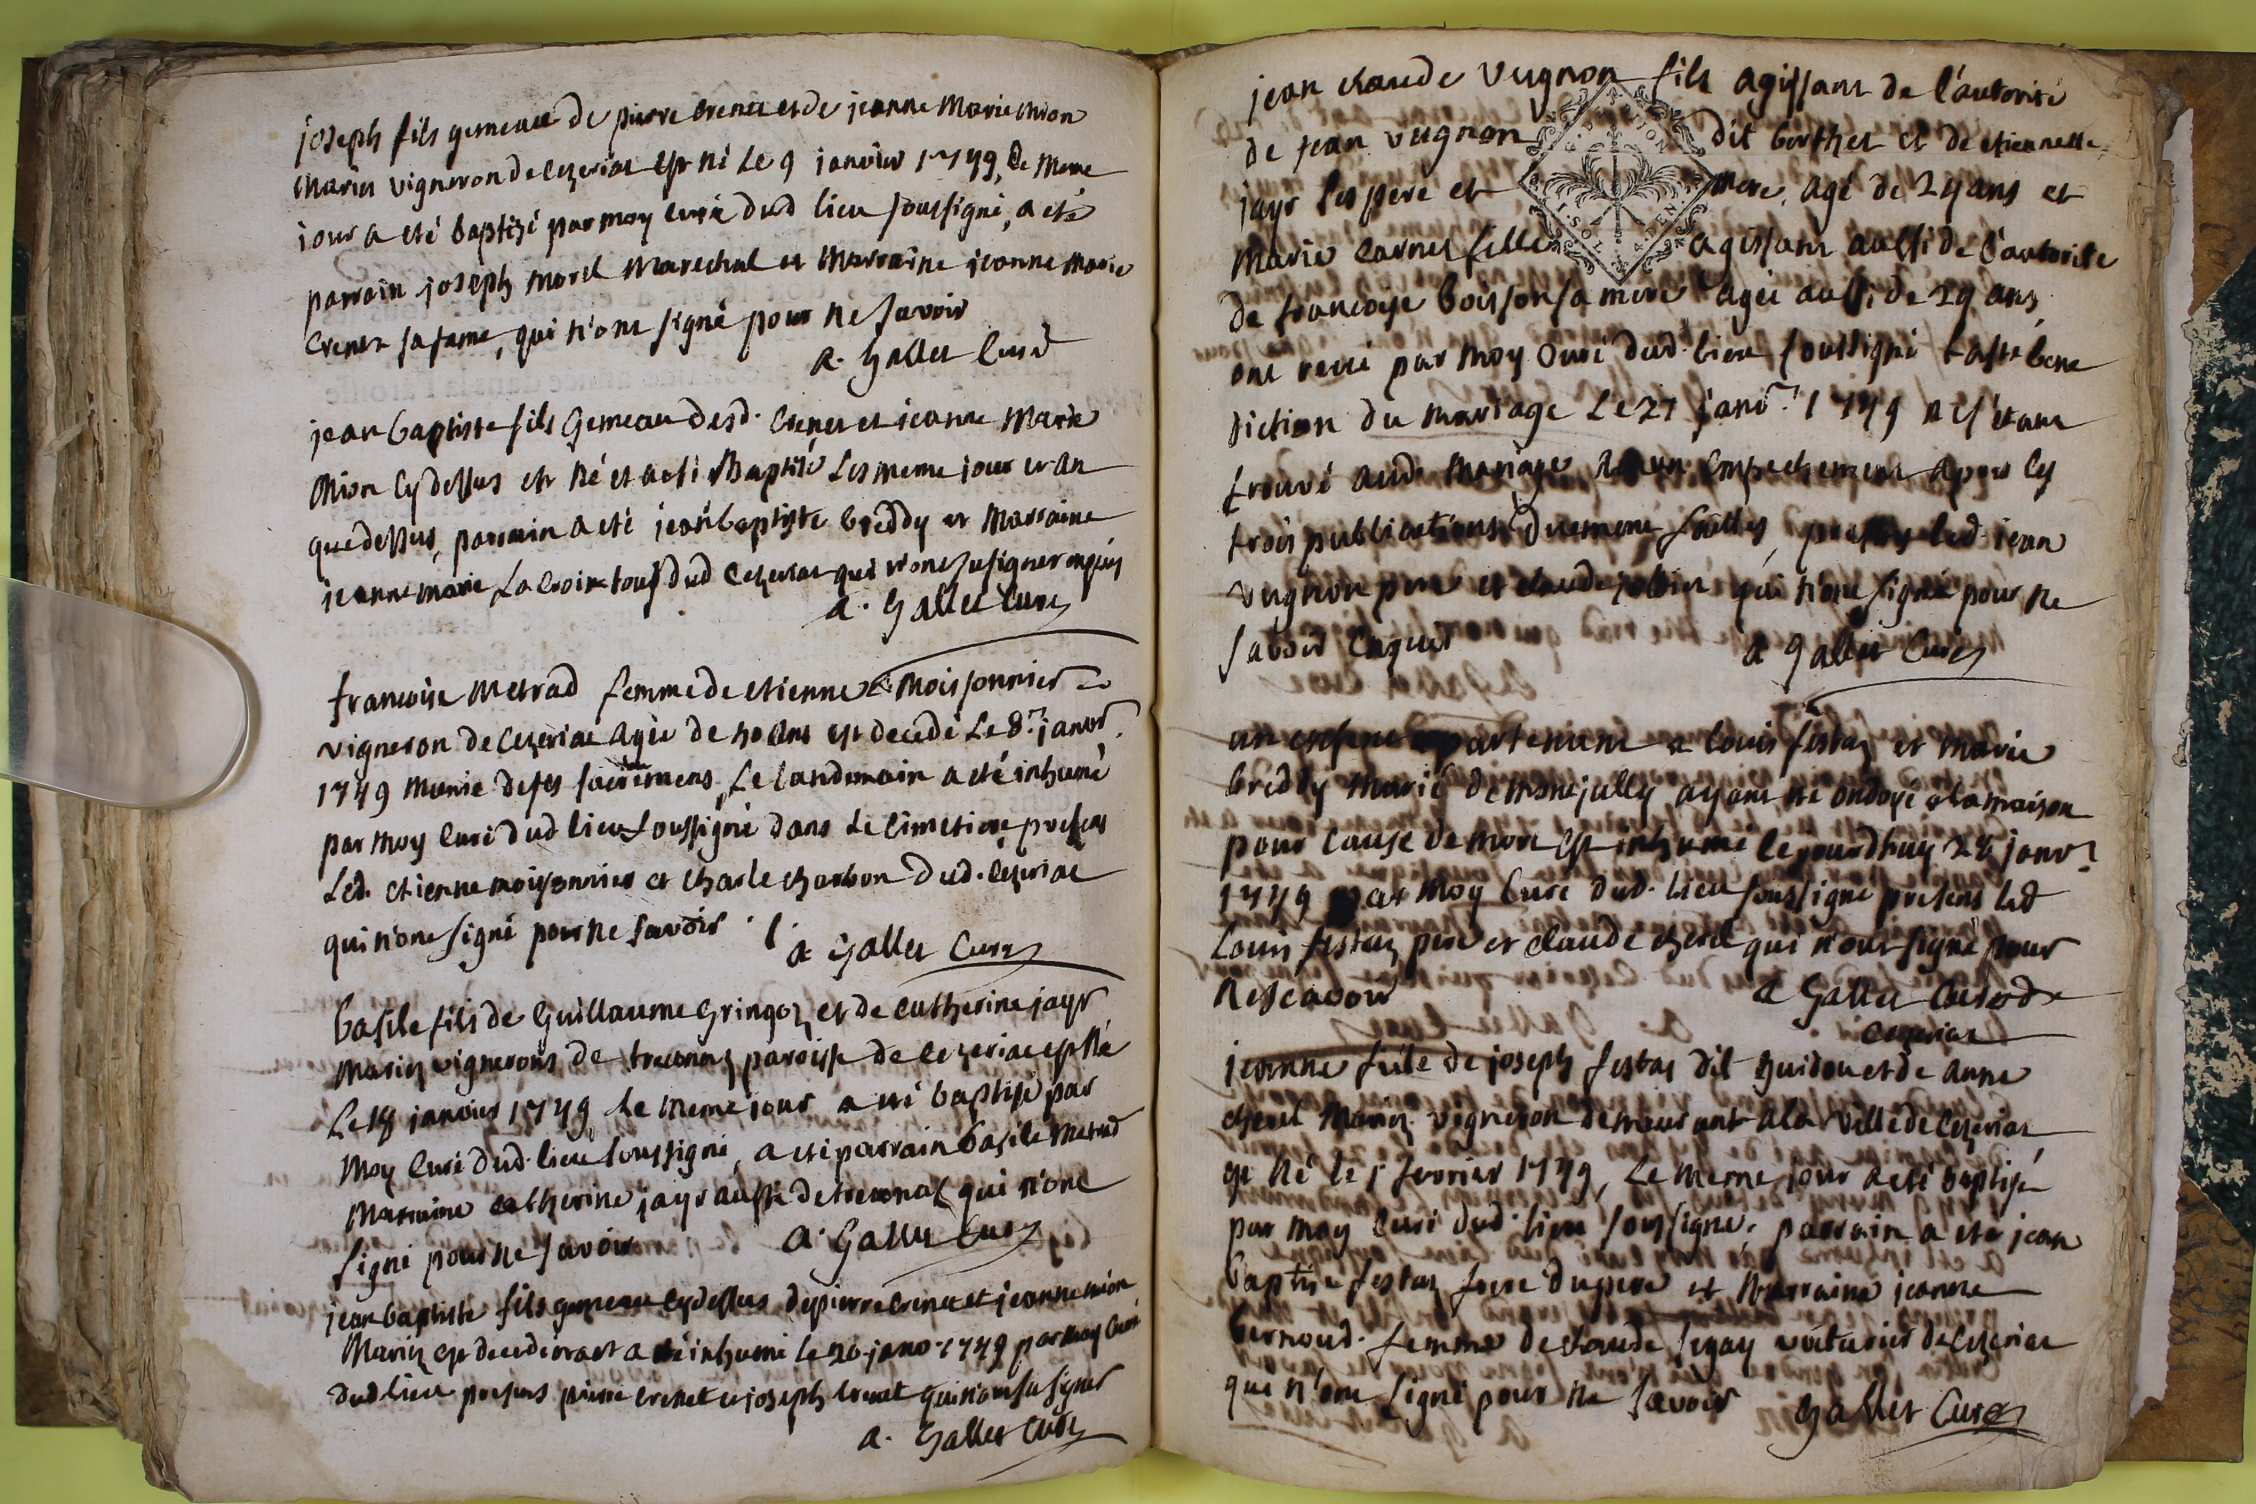 joseph fils gemeau de pierre crenet et de jeanne Marie mion
Mariez vigneron de Cezeriat est né le 9 janvier 1749, le Meme
jour a eté baptizé par moy curé dud lieu soussigné, a eté
parrain joseph morel Marechal et Marraine jeanne Marie
Crenet sa fame, qui n'ont signé pour ne savoir
a. Gallet Curé
jean baptiste fils Gemeau desd. Crenet et jeanne Marie
Mion cy dessus est né et a eté Baptisé les meme jour et an
que dessus, parrain a eté jean baptiste breddy et Marraine
jeanne marie La Croix tous dud Cezeriat qui n'ont su signer enquis
a. Gallet Curé
francoise Metrad femme de etienne Moissonnier
vigneron de Cezeriat agée de ans est decedé Le 8.e janvr
1749 Munie de ses sacremens, Le landemain a eté inhumé
par Moy Curé dud lieu soussigné dans Le Cimetiere presens
Led. etienne moissonnier et Charle Charbon dud. Cezeriat
qui n'ont signé pour ne savoir
a Gallet Curé
basile fils de Guillaume Gringoz et de Catherine jayr
Mariez vignerons de treconnaz paroisse de Cezeriat est Né
Le 18 janvier 1749 le Meme jour a eté baptisé par
Moy Curé dud. lieu soussigné, a eté parrain basile Metrad
Marraine Catherine jayr aussi de treconaz qui n'ont
signé pour ne savoir a. Gallet Curé
jean baptiste fils gemeau cy dessus de pierre Crenet et jeanne mion
Mariez est decedé et a eté inhumé le 20 janv. 1749 par Moy Curé
dud lieu presens pierre Crenet et joseph Crenet qui n'ont su signer
a. Gallet Curé
jean claude Vugnon fils agissant de l'autorité
de jean vugnon dit berthet et de etiennette
jayr ses pere et mere, agé de 29 ans et
Marie Carnet fille agissant aussi de l'autorité
de francoise boisson sa mere agée aussi de 29 ans
ont receu par Moy Curé dud. lieu soussigné la bene
diction du mariage Le 21 janv.r 1749 ne s'etant
trouvé aud. Mariage aucun Empechement apres les
trois publications duement faittes, presens led. jean
vugnon pere et claude qui n'ont signé pour ne
savoir enquis a Gallet Curé
un enfant appartenant a louis festaz et marie
breddy Mariés de Montjully ayant eté ondoyé a la maison
pour cause de mort est inhumé le jourdhuy 28 janv.r
1749 par Moy Curé dud. lieu soussigné presens led
Louis festaz pere et claude cherel qui n'ont signé pour
ne scavoir a Gallet Curé de
Cezeriat
jeanne fille de joseph festaz dit guidou et de anne
cherel Mariez vigneron demeurant a la ville de Cezeriat
est Né le 1 fevrier 1749, Le meme jour a eté baptisé
par moy Curé dud. lieu soussigné, parrain a eté jean
baptiste festaz frere du pere et Marraine jeanne
bernoud femme de claude segay voiturier de Cezeriat
qui n'ont signé pour ne savoir Gallet Curé